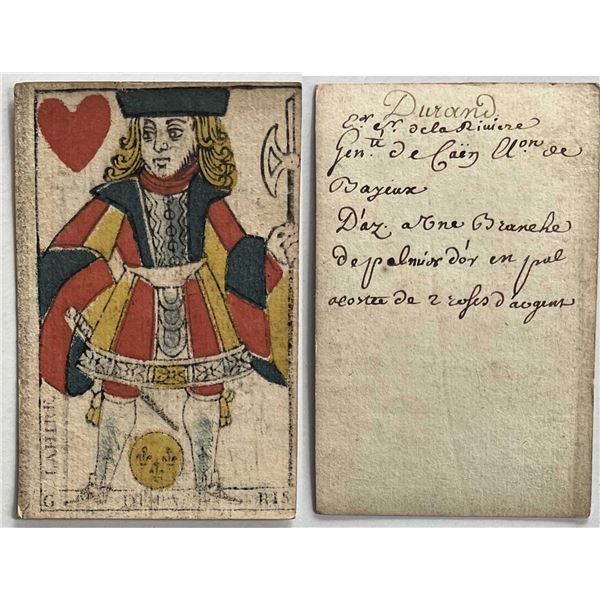 LAHIRE
G DE PARIS
Durand
Sr. de la Riviere
Gen.té de Caën El.on de
Bayeux
D'az. a une Branche
de palmier d'or en pal
acostée de 2 roses d'argent